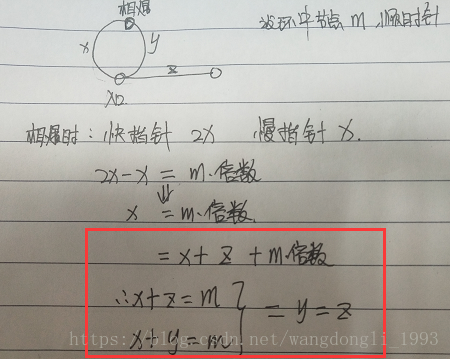 相遇
设环中节点 m，顺时针
x
y
z
入口
相遇时：快指针 2x 慢指针 x.
2x-x = m·倍数
⇓
x = m·倍数.
= x + z + m·倍数
∴x+z = m } = y = z
x+y = m
https://blog.csdn.net/wangdongli_1993